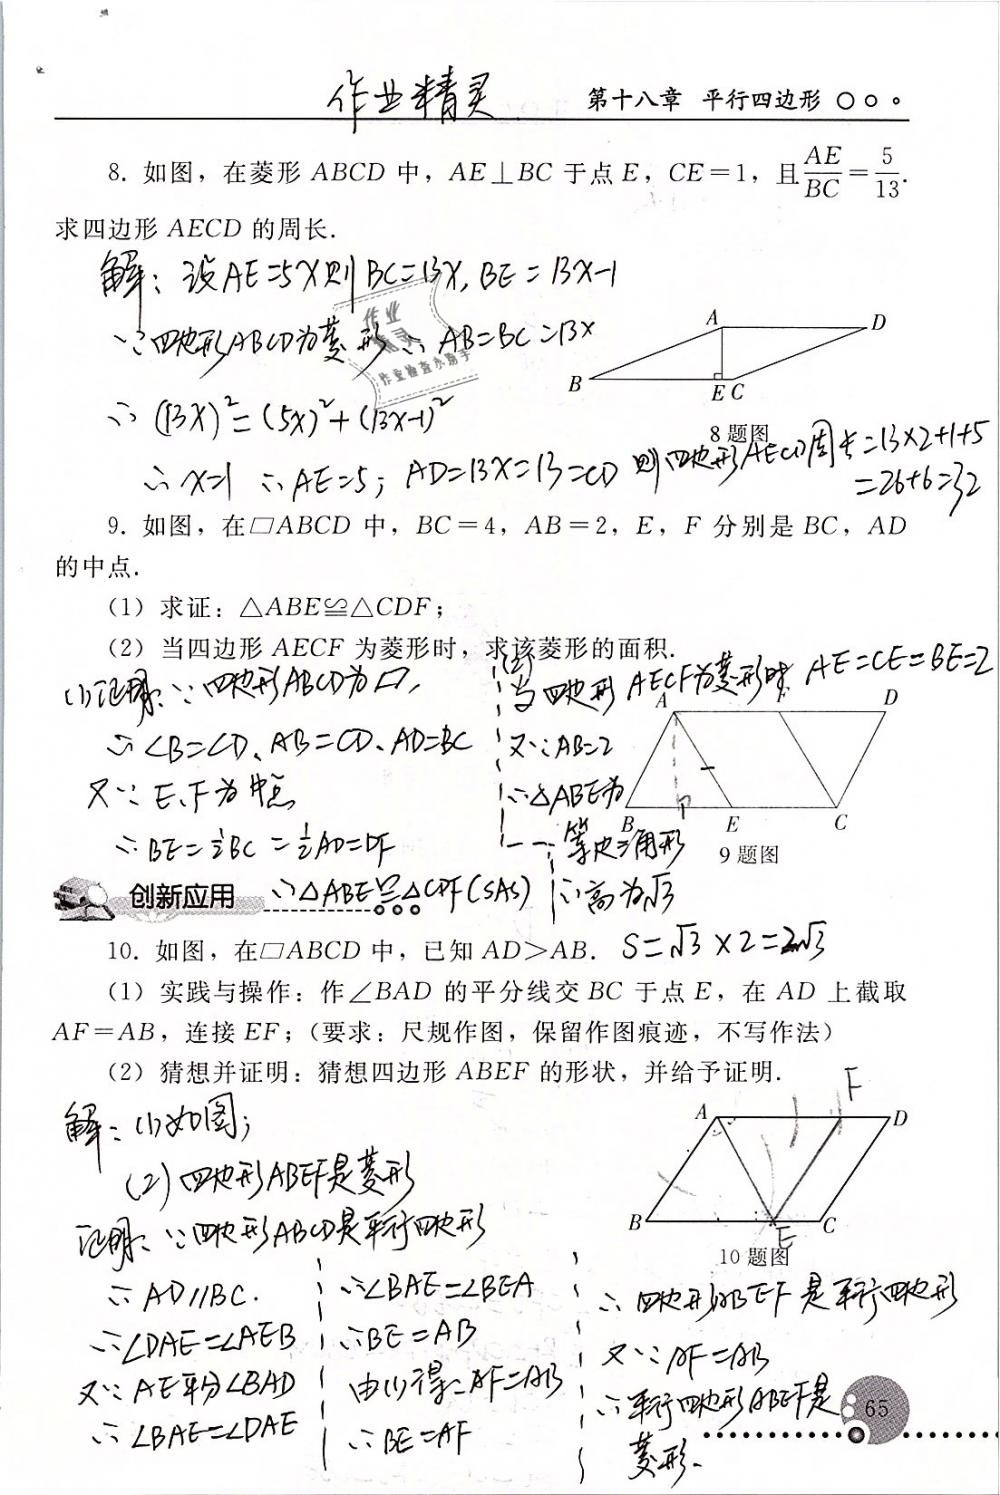 作业精灵
第十八章 平行四边形
8. 如图，在菱形 ABCD 中，AE⊥BC 于点 E，CE=1，且AE/BC=5/13.
求四边形 AECD 的周长.
解：设AE=5X则BC=13X, BE=13X-1
∵四边形ABCD为菱形∴AB=BC=13X
∴(13X)²=(5X)²+(13X-1)²
∴X=1 ∴AE=5; AD=13X=13=CD 则四边形AECD周长=13×2+1+5
=26+6=32
A
D
B
E C
8题图
9. 如图，在▱ABCD 中，BC=4，AB=2，E，F 分别是 BC，AD
的中点.
(1) 求证：△ABE≌△CDF；
(2) 当四边形 AECF 为菱形时，求该菱形的面积.
(1)证明：∵四边形ABCD为▱,
∴∠B=∠D、AB=CD、AD=BC
又∵E、F为中点
∴BE=½BC=½AD=DF
∴△ABE≌△CDF(SAS)
(2)
当四边形AECF为菱形时 AE=CE=BE=2
又∵AB=2
∴△ABE为
等边三角形
∴高为√3
S=√3×2=2√3
A
F
D
B
E
C
9题图
创新应用
10. 如图，在▱ABCD 中，已知 AD>AB.
(1) 实践与操作：作∠BAD 的平分线交 BC 于点 E，在 AD 上截取
AF=AB，连接 EF；（要求：尺规作图，保留作图痕迹，不写作法）
(2) 猜想并证明：猜想四边形 ABEF 的形状，并给予证明.
解：(1)如图；
(2)四边形ABEF是菱形
证明：∵四边形ABCD是平行四边形
∴AD//BC.
∴∠DAE=∠AEB
又∵AE平分∠BAD
∴∠BAE=∠DAE
∴∠BAE=∠BEA
∴BE=AB
由(1)得：AF=AB
∴BE=AF
∴四边形ABEF是平行四边形
又∵AF=AB
∴平行四边形ABEF是
菱形.
F
A
D
B
E
C
10题图
65